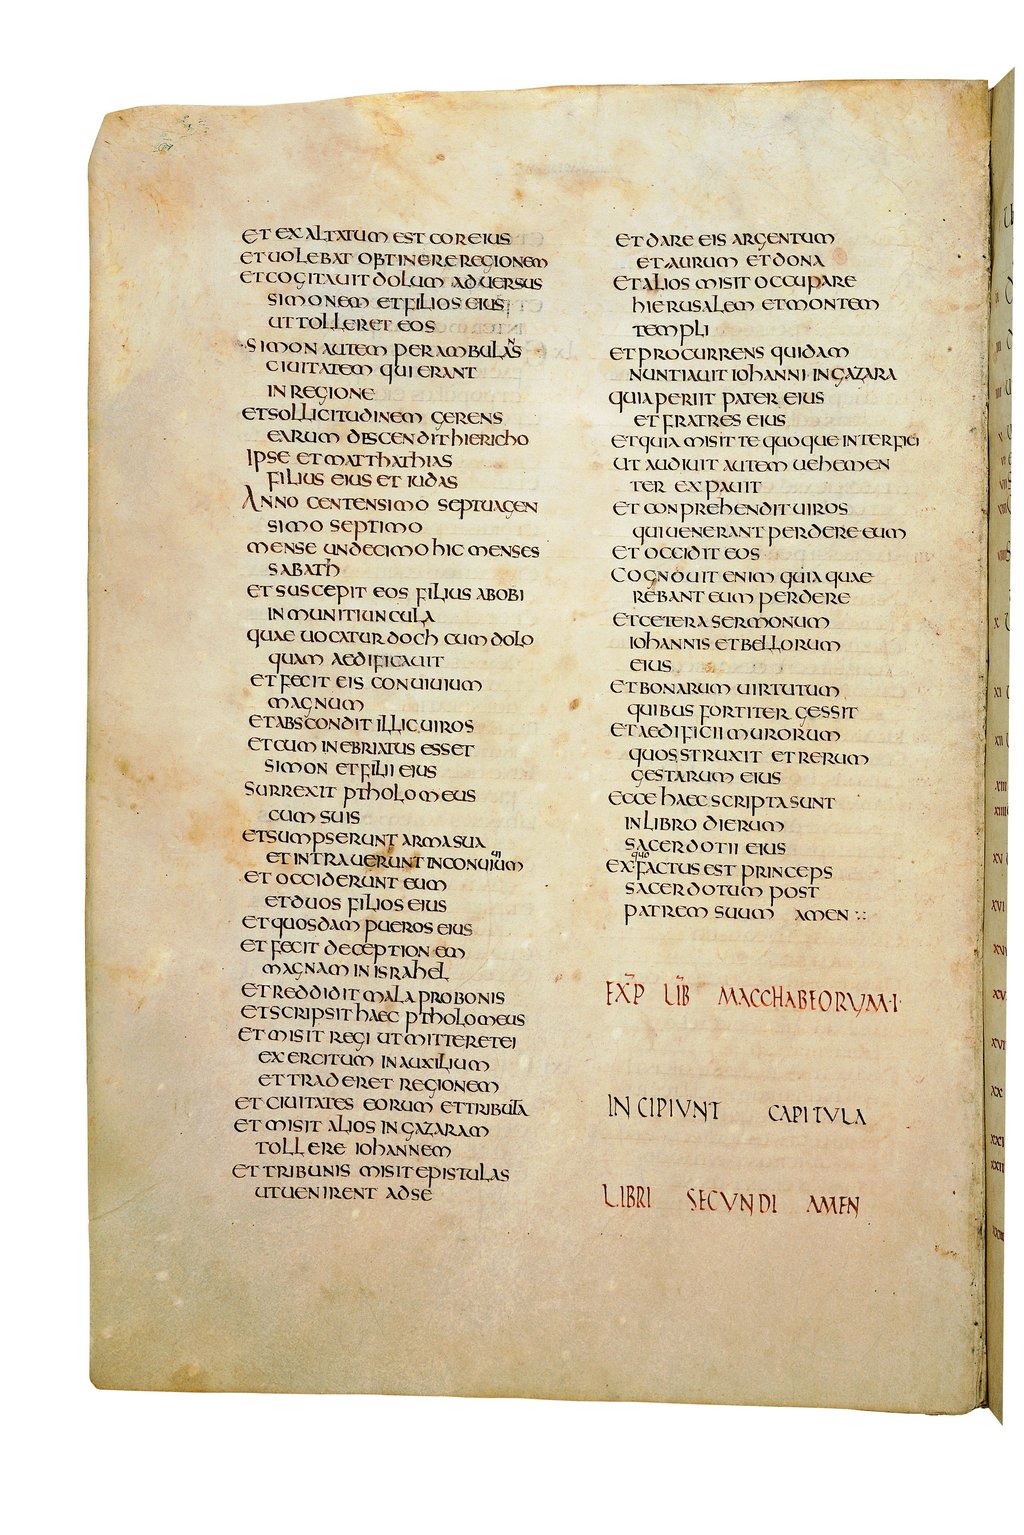 ET EXALTATUM EST COR EIUS
ET UOLEBAT OBTINERE REGIONEM
ET COGITAUIT DOLUM ADUERSUS
SIMONEM ET FILIOS EIUS
UT TOLLERET EOS
SIMON AUTEM PERAMBULAS
CIUITATEM QUI ERANT
IN REGIONE
ET SOLLICITUDINEM GERENS
EARUM DISCENDIT HIERICHO
IPSE ET MATTHATHIAS
FILIUS EIUS ET IUDAS
ANNO CENTENSIMO SEPTUAGEN
SIMO SEPTIMO
MENSE UNDECIMO HIC MENSES
SABATH
ET SUSCEPIT EOS FILIUS ABOBI
IN MUNITIUNCULA
QUAE UOCATUR DOCH CUM DOLO
QUAM AEDIFICAUIT
ET FECIT EIS CONUIUIUM
MAGNUM
ET ABSCONDIT ILLIC UIROS
ET CUM INEBRIATUS ESSET
SIMON ET FILII EIUS
SURREXIT PTHOLOMEUS
CUM SUIS
ET SUMPSERUNT ARMA SUA
ET INTRAUERUNT IN CONUIUIUM
ET OCCIDERUNT EUM
ET DUOS FILIOS EIUS
ET QUOSDAM PUEROS EIUS
ET FECIT DECEPTIONEM
MAGNAM IN ISRAHEL
ET REDDIDIT MALA PRO BONIS
ET SCRIPSIT HAEC PTHOLOMEUS
ET MISIT REGI UT MITTERET EI
EXERCITUM IN AUXILIUM
ET TRADERET REGIONEM
ET CIUITATES EORUM ET TRIBUTA
ET MISIT ALIOS IN GAZARAM
TOLLERE IOHANNEM
ET TRIBUNIS MISIT EPISTULAS
UT UENIRENT AD SE
ET DARE EIS ARGENTUM
ET AURUM ET DONA
ET ALIOS MISIT OCCUPARE
HIERUSALEM ET MONTEM
TEMPLI
ET PROCURRENS QUIDAM
NUNTIAUIT IOHANNI IN GAZARA
QUIA PERIIT PATER EIUS
ET FRATRES EIUS
ET QUIA MISIT TE QUOQUE INTERFICI
UT AUDIUIT AUTEM UEHEMEN
TER EXPAUIT
ET CONPREHENDIT UIROS
QUI UENERANT PERDERE EUM
ET OCCIDIT EOS
COGNOUIT ENIM QUIA QUAE
REBANT EUM PERDERE
ET CETERA SERMONUM
IOHANNIS ET BELLORUM
EIUS
ET BONARUM UIRTUTUM
QUIBUS FORTITER GESSIT
ET AEDIFICII MURORUM
QUOS STRUXIT ET RERUM
GESTARUM EIUS
ECCE HAEC SCRIPTA SUNT
IN LIBRO DIERUM
SACERDOTII EIUS
EX QUO FACTUS EST PRINCEPS
SACERDOTUM POST
PATREM SUUM AMEN
EXP LIB MACCHABEORVM·I·
INCIPIVNT CAPITVLA
LIBRI SECVNDI AMEN